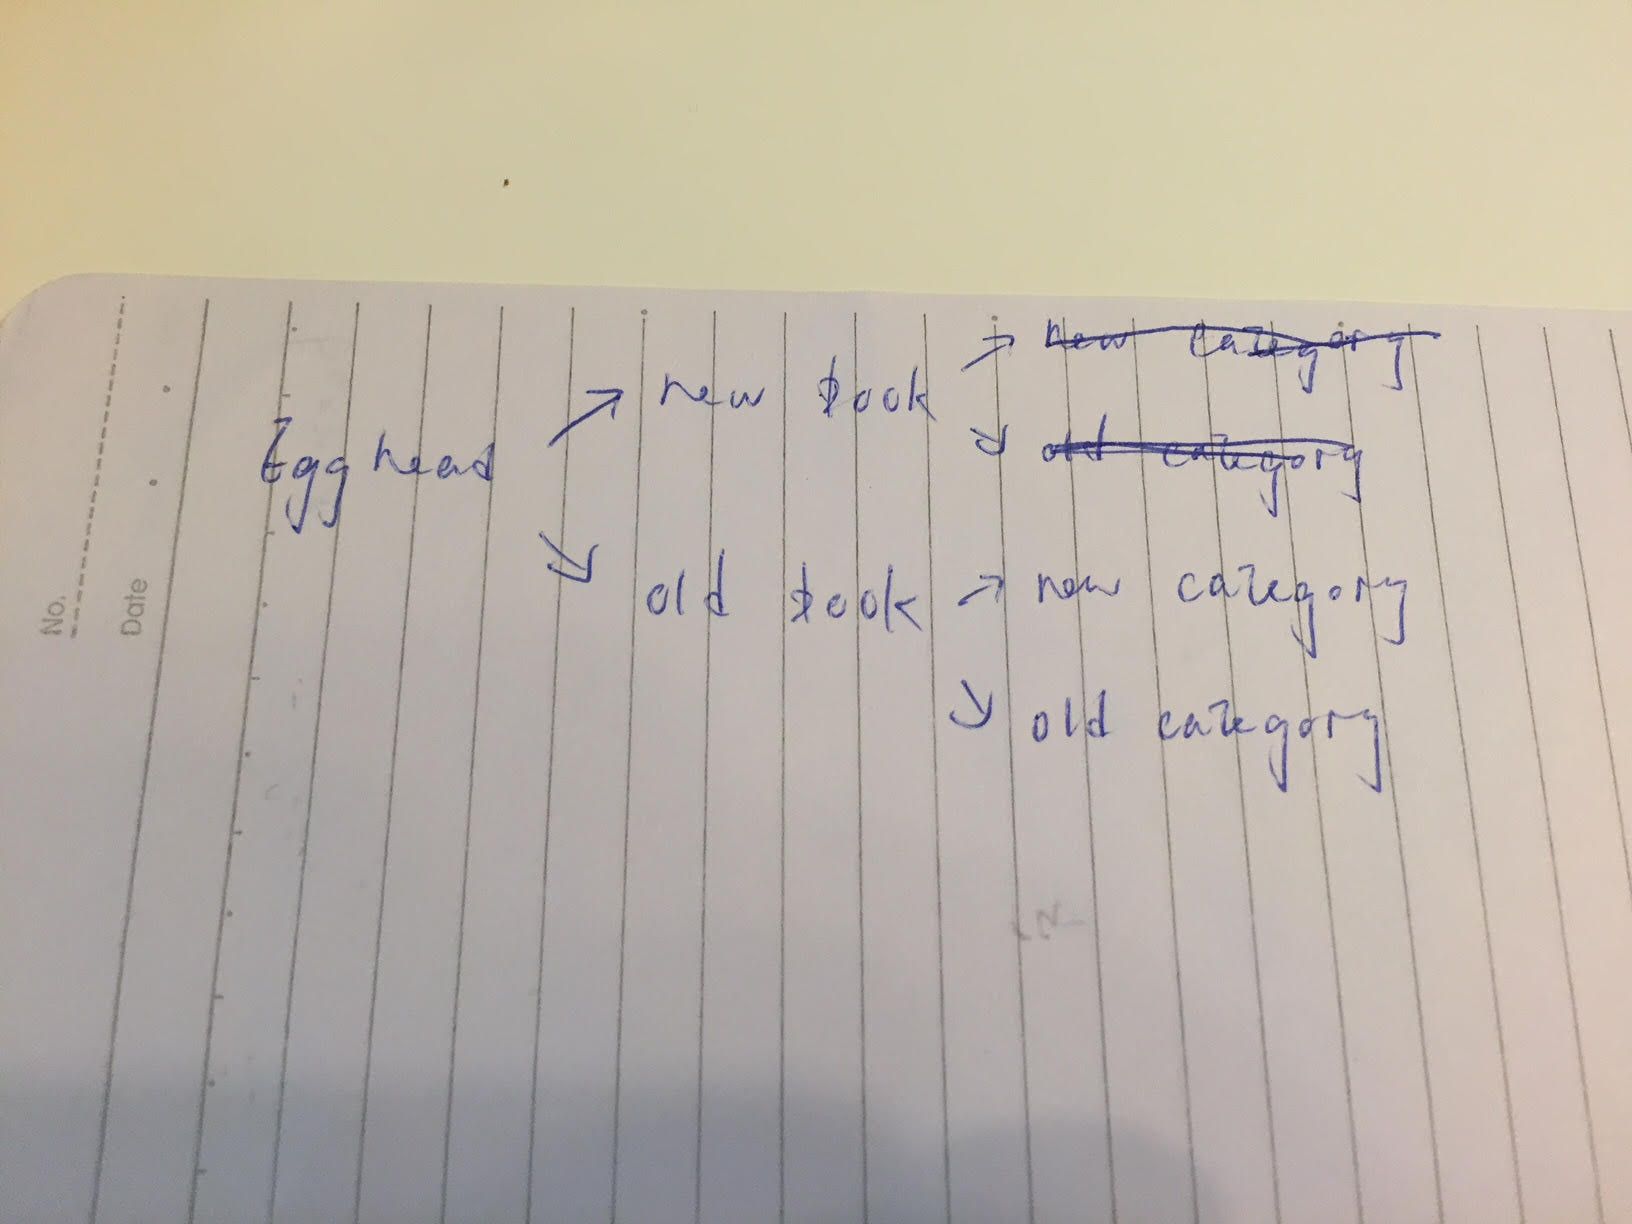 new category
new book
Egg head
old category
old book
new category
old category
No.
Date